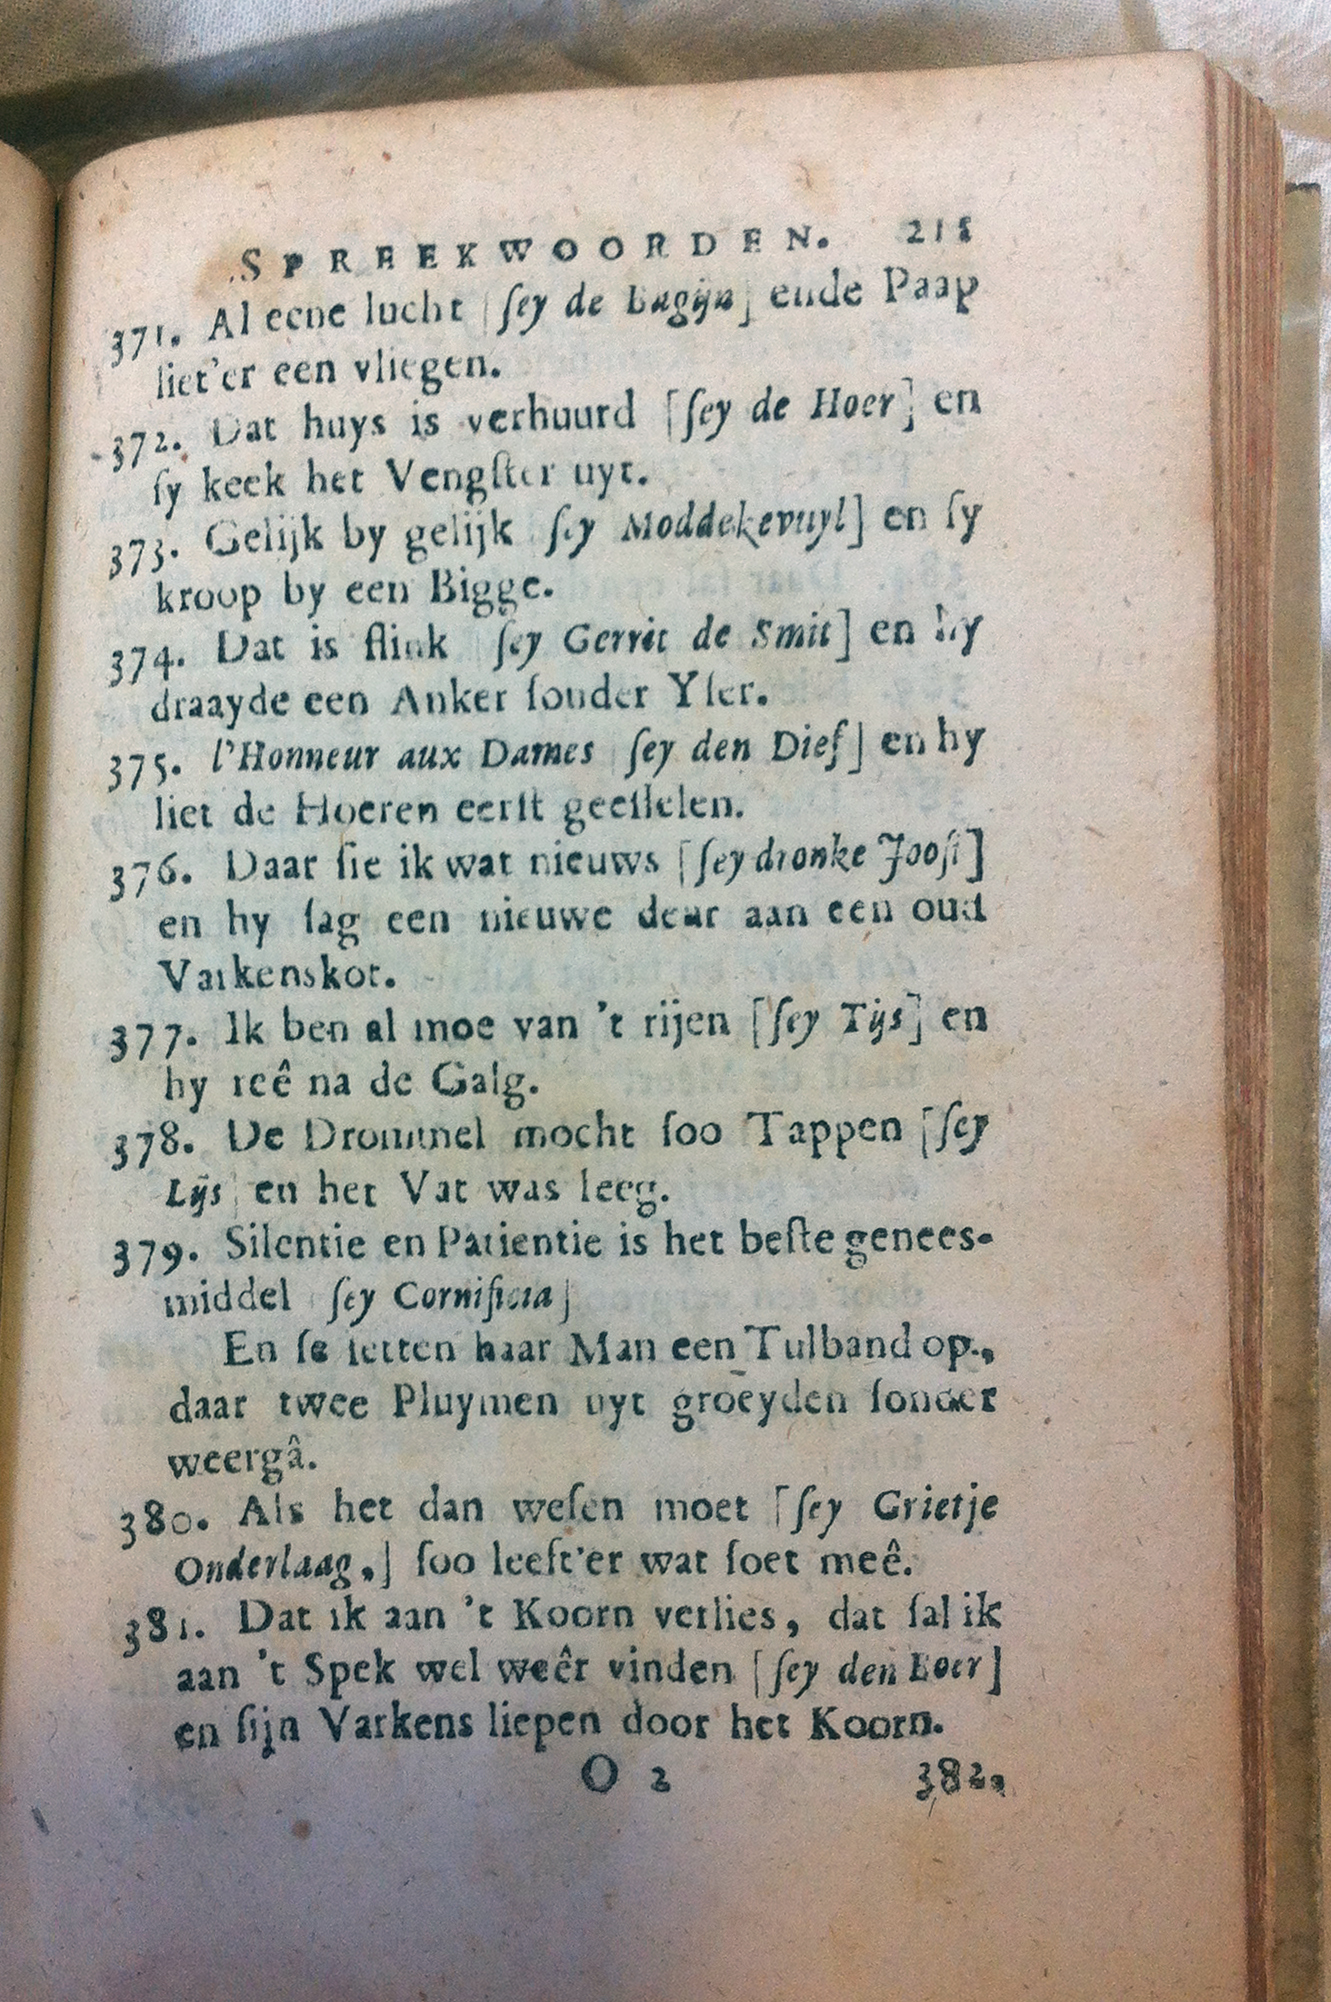 SPREEKWOORDEN. 215
371. Al eene lucht [ſey de Bagijn] ende Paap
liet'er een vliegen.
372. Dat huys is verhuurd [ſey de Hoer] en
ſy keek het Vengſter uyt.
373. Gelijk by gelijk [ſey Moddekevuyl] en ſy
kroop by een Bigge.
374. Dat is flink [ſey Gerrit de Smit] en hy
draayde een Anker ſonder Yſer.
375. l'Honneur aux Dames [ſey den Dief] en hy
liet de Hoeren eerſt geeſſelen.
376. Daar ſie ik wat nieuws [ſey dronke Jooſt]
en hy ſag een nieuwe deur aan een oud
Varkenskot.
377. Ik ben al moe van 't rijen [ſey Tijs] en
hy reê na de Galg.
378. De Drommel mocht ſoo Tappen [ſey
Lijs] en het Vat was leeg.
379. Silentie en Patientie is het beſte genees-
middel [ſey Cornificia]
En ſe ſetten haar Man een Tulband op.,
daar twee Pluymen uyt groeyden ſonder
weergâ.
380. Als het dan weſen moet [ſey Grietje
Onderlaag,] ſoo leeft'er wat ſoet meê.
381. Dat ik aan 't Koorn verlies, dat ſal ik
aan 't Spek wel weêr vinden [ſey den Boer]
en ſijn Varkens liepen door het Koorn.
O 2 382.